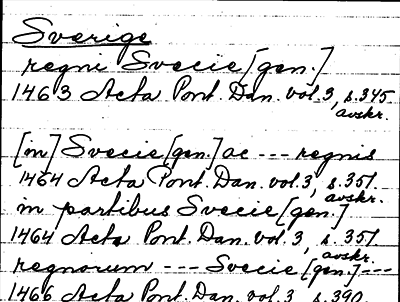 Sverige
regni Svecie [gen.]
1463 Acta Pont. Dan. vol. 3, s. 345
avskr.
[in] Svecie [gen.] ac --- regnis
1464 Acta Pont. Dan. vol. 3, s. 351
avskr.
in partibus Svecie [gen.]
1464 Acta Pont. Dan. vol. 3, s. 351
avskr.
regnorum --- Svecie [gen.] ---
1466 Acta Pont. Dan. vol. 3, s. 390